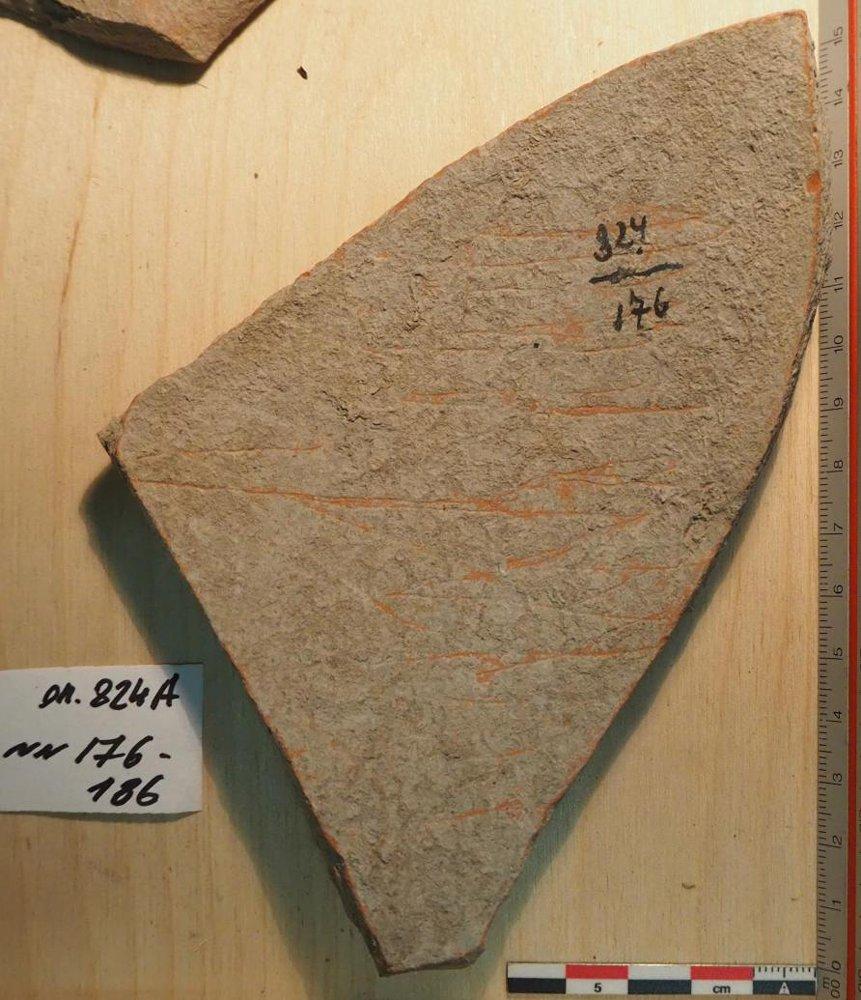 824
176
оп. 824А
NN 176-
186
15
14
13
12
11
10
9
8
7
6
5
4
3
2
1
0
5
cm